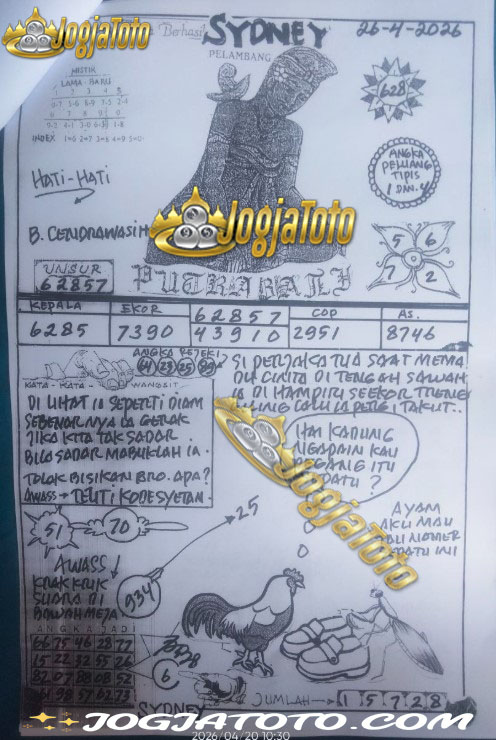 JogjaToto
Berhasil SYDNEY
26-4-2026
PELAMBANG
MISTIK
LAMA - BARU
INDEX 1=6 2=7 3=8 4=9 5=0
628
HATI-HATI
ANGKA
PELUANG
TIPIS
B. CENDRAWASIH
JogjaToto
5 6
7 2
UNSUR
62857
PUTRA BALI
KEPALA EKOR 62857 COP AS.
6285 7390 43910 2951 8746
ANGKA REJEKI
KATA - KATA - WANGSIT
DI LIHAT IA SEPERTI DIAM
SEBENARNYA IA GERAK
JIKA KITA TAK SADAR
BILA SADAR MABUKLAH IA.
TOLOK BISIKAN BRO. APA?
AWASS → TELITI KODE SYETAN.
SI PERJAKA TUA SAAT MEMA
DU CINTA DI TENGAH SAWAH
IA DI HAMPIRI SEEKOR
LALU IA PERGI TAKUT..
HAI KADUNG
NGAPAIN KAU
PEGANG ITU
?
JogjaToto
AYAM
AKU MAU
NOMER
INI
51
70
25
AWASS
KRAK KRIK
SUARA DI
BAWAH MEJA
934
ANGKA JADI
66 75 46 28 77
15 22 32 55 26
82 07 88 08 52
98 57 62 73
6
JUMLAH → 1 5 7 2 8
SYDNEY
JOGJATOTO.COM
2026/04/20 10:30